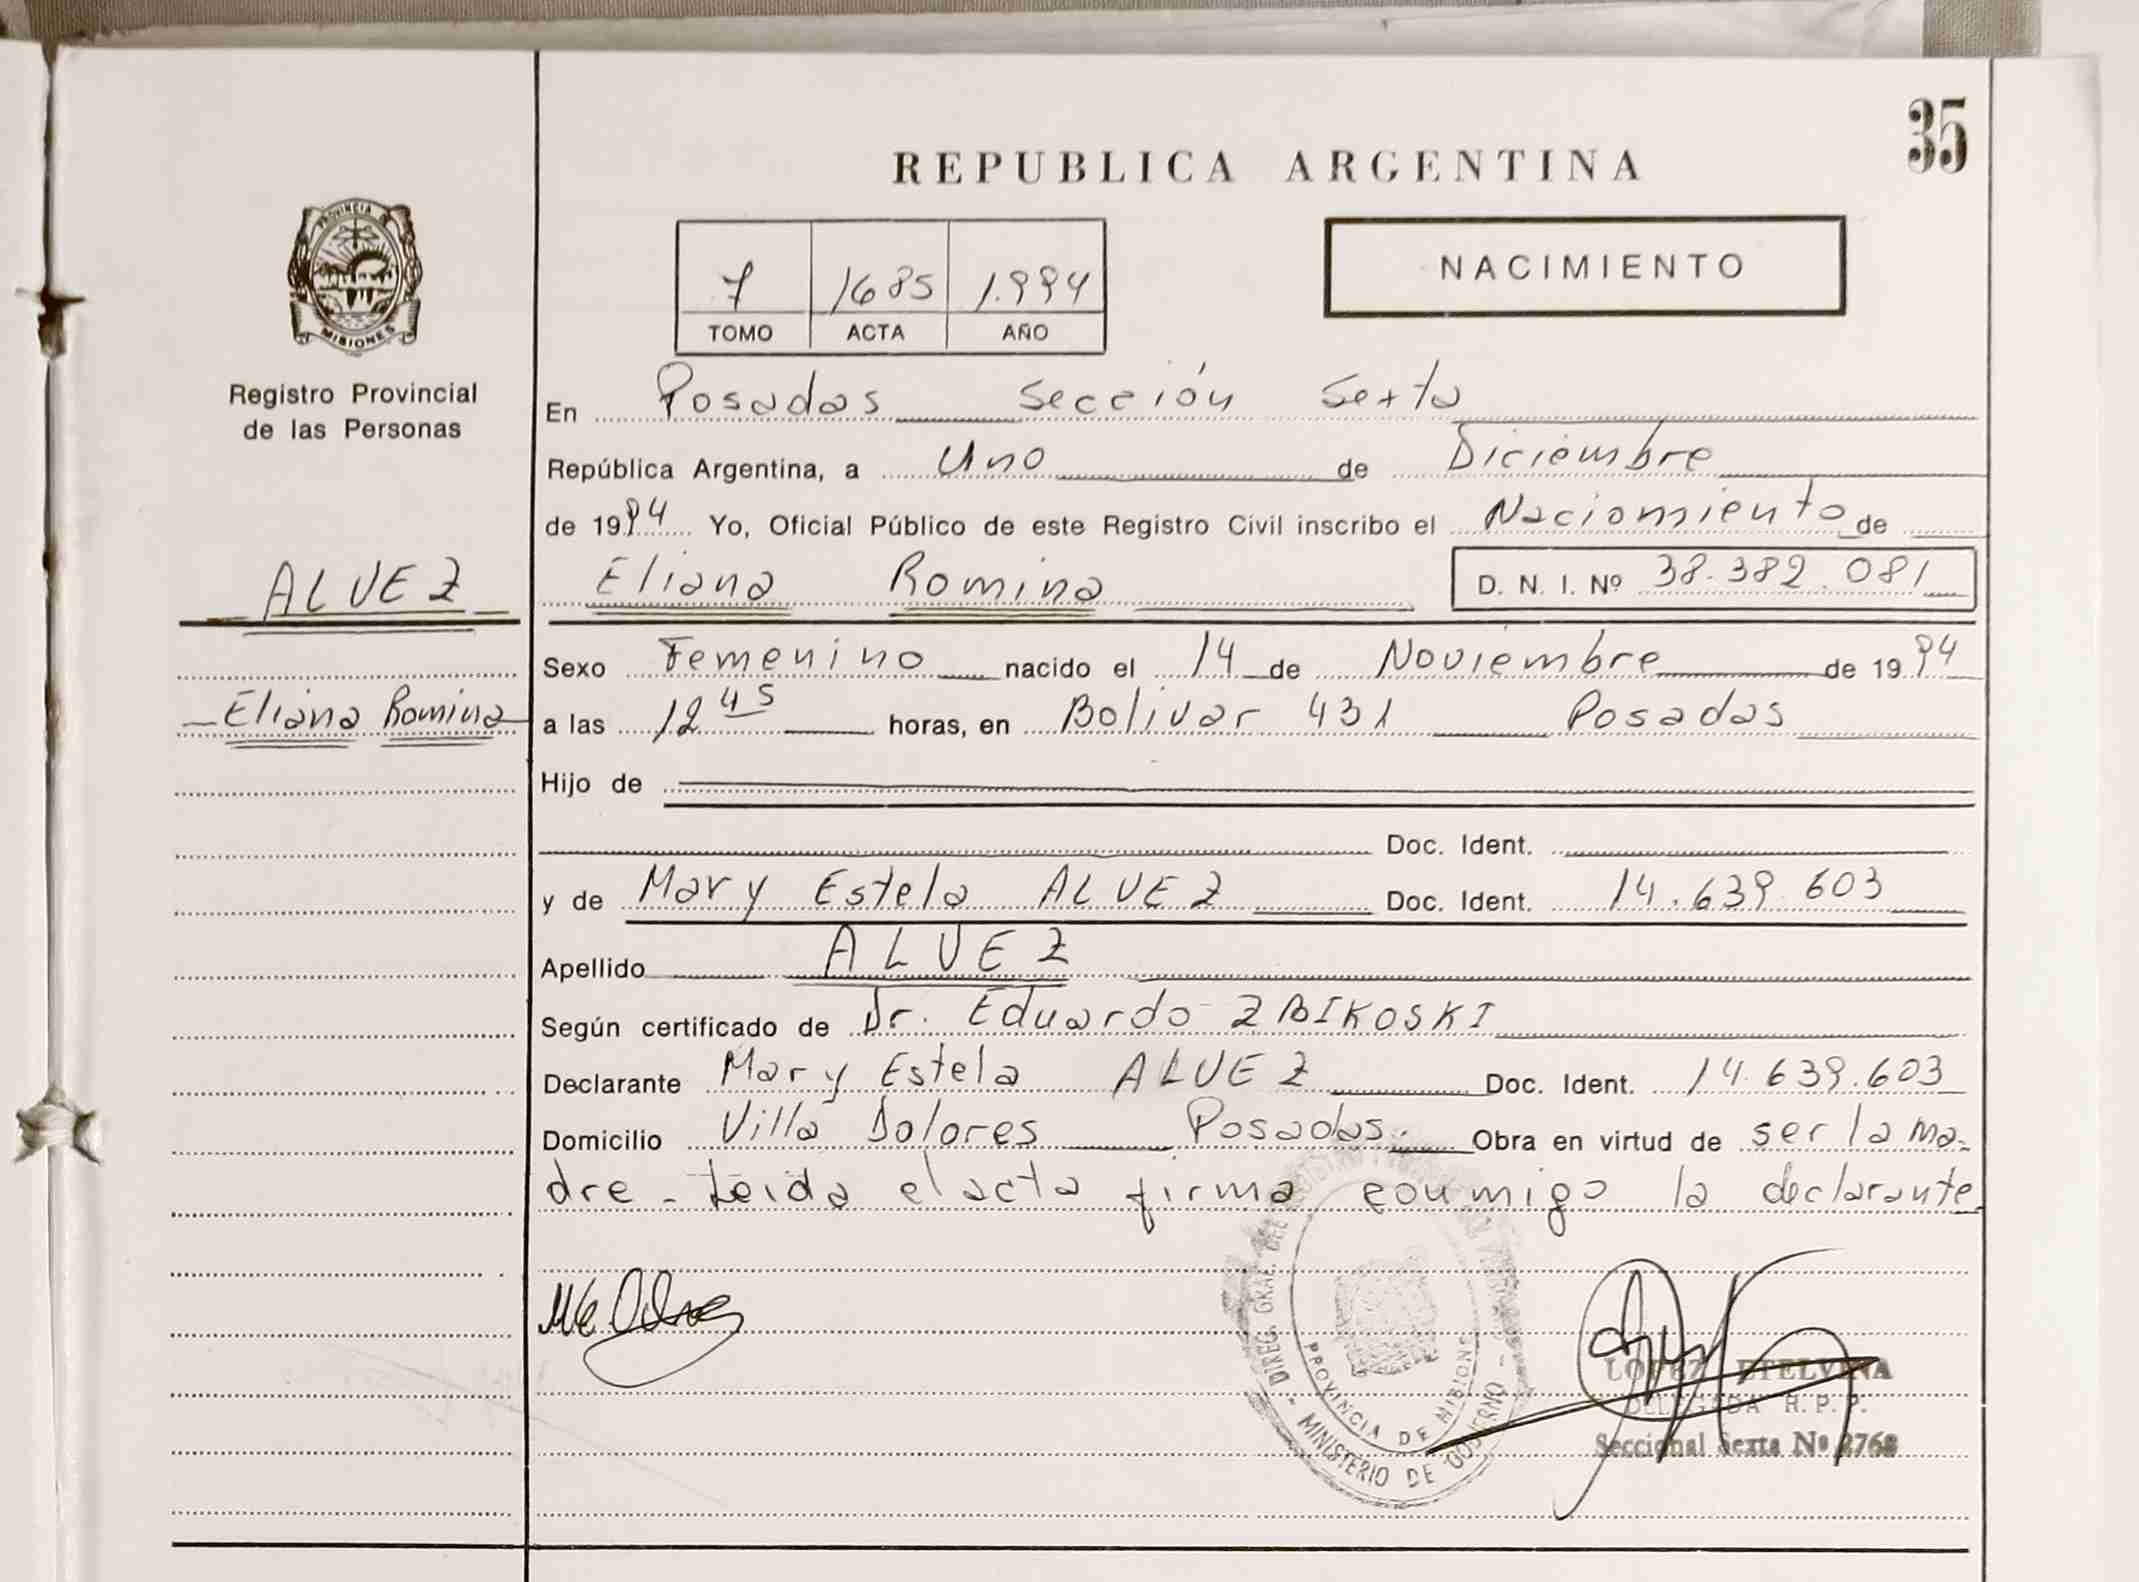 35
REPUBLICA ARGENTINA
PROVINCIA DE
MISIONES
Registro Provincial
de las Personas
7 1685 1.994
TOMO ACTA AÑO
NACIMIENTO
En Posadas Sección Sexta
República Argentina, a Uno de Diciembre
de 1994 Yo, Oficial Público de este Registro Civil inscribo el Naciomiento de
ALVEZ
Eliana Romina D. N. I. Nº 38.382.081
Sexo Femenino nacido el 14 de Noviembre de 1994
Eliana Romina
a las 12 45 horas, en Bolivar 431 Posadas
Hijo de
Doc. Ident.
y de Mary Estela ALVEZ Doc. Ident. 14.639.603
Apellido ALVEZ
Según certificado de Dr. Eduardo ZBIKOSKI
Declarante Mary Estela ALVEZ Doc. Ident. 14.639.603
Domicilio Villa Dolores Posadas. Obra en virtud de ser la ma-
dre - Leida el acta firma conmigo la declarante
DIREG. GRAL. DEL
PROVINCIA DE MISIONES
MINISTERIO DE GOBIERNO
LOPEZ ETELVINA
DELEGADA R. P. P.
Seccional Sexta Nº 2768